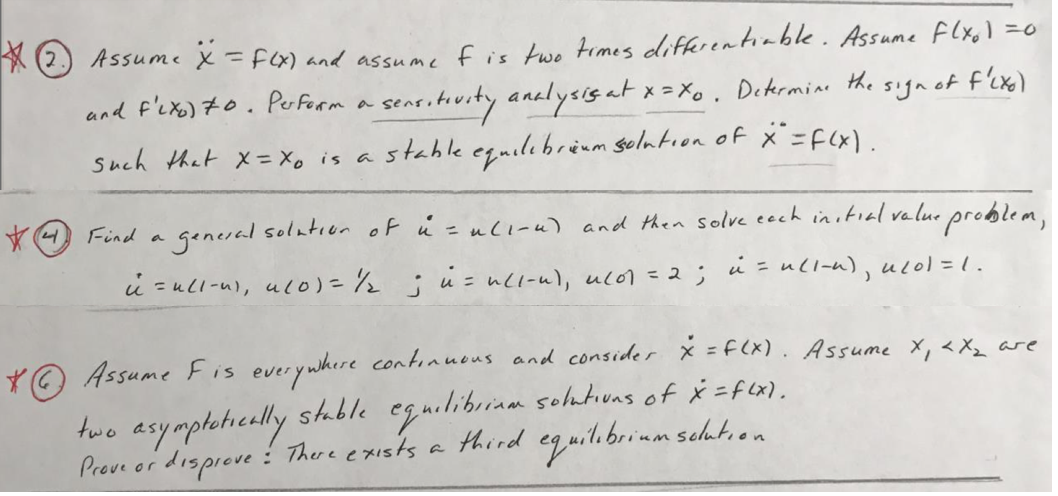 ☆ (2.) Assume ẍ = f(x) and assume f is two times differentiable. Assume f(x₀) = 0
and f'(x₀) ≠ 0. Perform a sensitivity analysis at x = x₀. Determine the sign of f'(x₀)
such that x = x₀ is a stable equilibrium solution of ẍ = f(x).
☆ (4) Find a general solution of u̇ = u(1-u) and then solve each initial value problem,
u̇ = u(1-u), u(0) = 1/2 ; u̇ = u(1-u), u(0) = 2 ; u̇ = u(1-u), u(0) = 1.
☆ (6) Assume f is everywhere continuous and consider ẋ = f(x). Assume x₁ < x₂ are
two asymptotically stable equilibrium solutions of ẋ = f(x).
Prove or disprove : There exists a third equilibrium solution